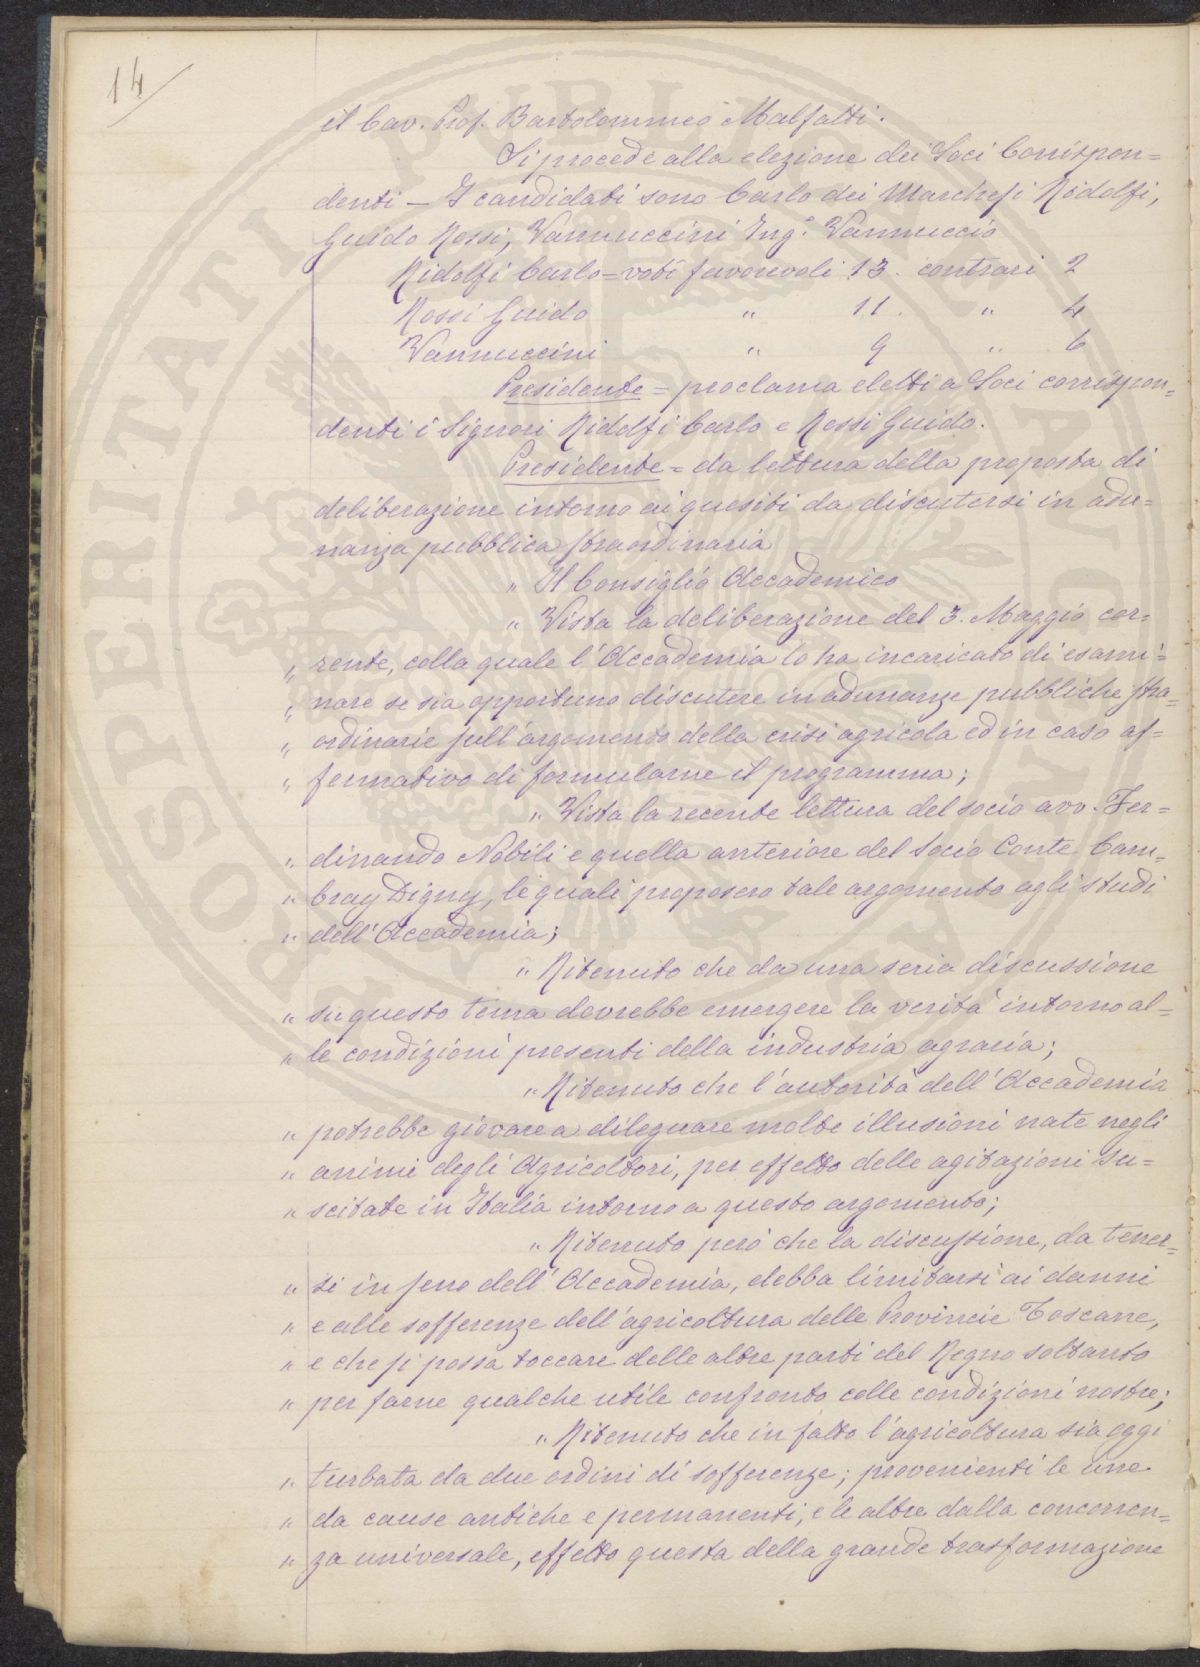 14
il Cav. Prof. Bartolommeo Malfatti.
Si procede alla elezione dei Soci Corrispon=
denti — I candidati sono Carlo dei Marchesi Ridolfi,
Guido Rossi, Vannuccini Ing.e Vannuccio
Ridolfi Carlo = voti favorevoli 13. contrari 2
Rossi Guido " 11. " 4
Vannuccini " 9 " 6
Presidente = proclama eletti a Soci corrispon=
denti i Signori Ridolfi Carlo e Rossi Guido.
Presidente = da lettura della proposta di
deliberazione intorno ai quesiti da discutersi in adu=
nanza pubblica straordinaria
" Il Consiglio Accademico
" Vista la deliberazione del 3. Maggio cor=
" rente, colla quale l'Accademia lo ha incaricato di esami=
" nare se sia opportuno discutere in adunanze pubbliche stra=
" ordinarie sull'argomento della crisi agricola ed in caso af=
" fermativo di formularne il programma;
" Vista la recente lettura del socio avv. Fer=
" dinando Nobili e quella anteriore del Socio Conte Cam=
" bray Digny, le quali proposero tale argomento agli studi
" dell'Accademia;
" Ritenuto che da una seria discussione
" su questo tema dovrebbe emergere la verità intorno al=
" le condizioni presenti della industria agraria;
" Ritenuto che l'autorità dell'Accademia
" potrebbe giovare a dileguare molte illusioni nate negli
" animi degli Agricoltori, per effetto delle agitazioni su=
" scitate in Italia intorno a questo argomento;
" Ritenuto però che la discussione, da tener=
" si in seno dell'Accademia, debba limitarsi ai danni
" e alle sofferenze dell'agricoltura delle Provincie Toscane,
" e che si possa toccare delle altre parti del Regno soltanto
" per farne qualche utile confronto colle condizioni nostre;
" Ritenuto che in fatto l'agricoltura sia oggi
" turbata da due ordini di sofferenze; provenienti le une
" da cause antiche e permanenti, e le altre dalla concorren=
" za universale, effetto questa della grande trasformazione
PROSPERITATI PUBLICAE AUGENDAE